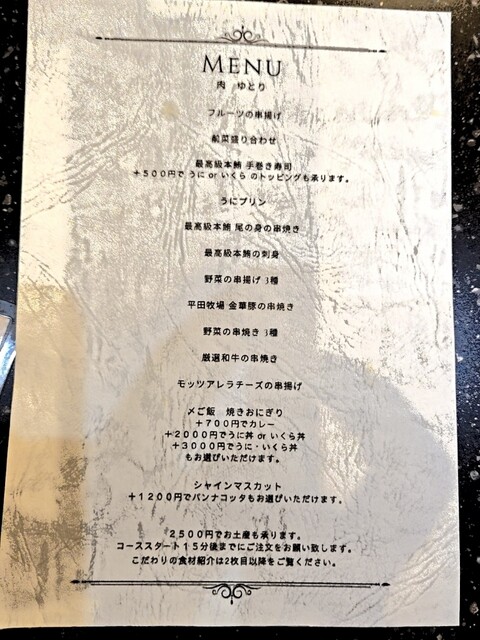 MENU
肉 ゆとり
フルーツの串揚げ
前菜盛り合わせ
最高級本鮪 手巻き寿司
+500円で うに or いくら のトッピングも承ります。
うにプリン
最高級本鮪 尾の身の串焼き
最高級本鮪の刺身
野菜の串揚げ 3種
平田牧場 金華豚の串焼き
野菜の串焼き 3種
厳選和牛の串焼き
モッツアレラチーズの串揚げ
〆ご飯 焼きおにぎり
+700円でカレー
+2000円でうに丼 or いくら丼
+3000円でうに・いくら丼
もお選びいただけます。
シャインマスカット
+1200円でパンナコッタもお選びいただけます。
2500円でお土産も承ります。
コーススタート15分後までにご注文をお願い致します。
こだわりの食材紹介は2枚目以降をご覧ください。